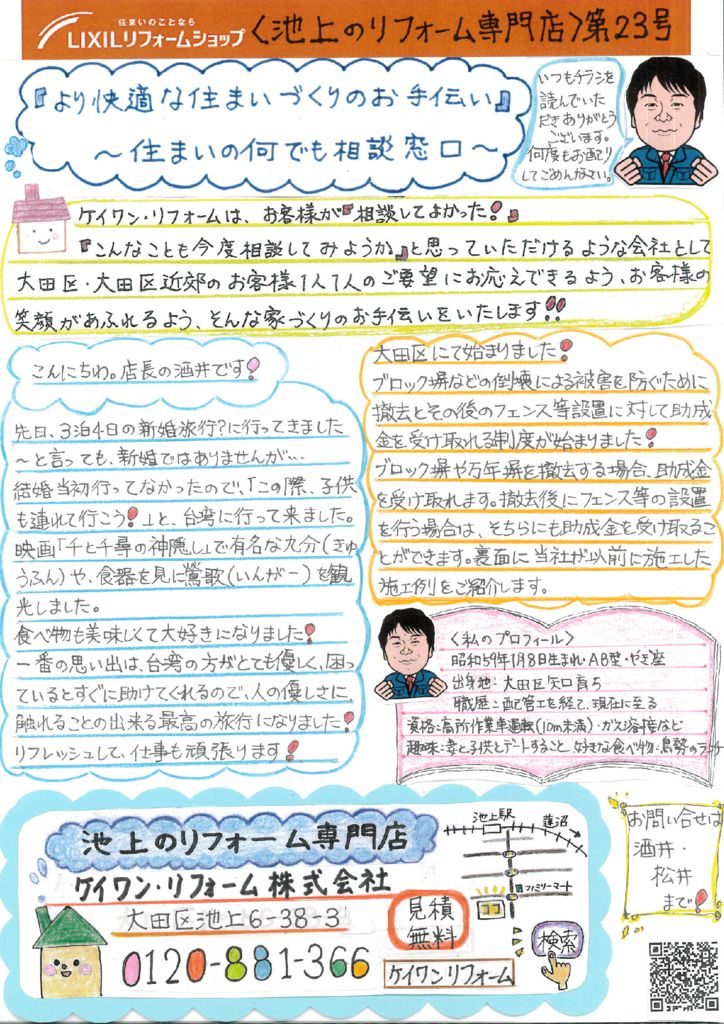 住まいのことなら
LIXILリフォームショップ
〈池上のリフォーム専門店〉第23号
『より快適な住まいづくりのお手伝い』
～住まいの何でも相談窓口～
いつもチラシを
読んでいた
だきありがとう
ございます。
何度もお配り
してごめんなさい。
ケイワン・リフォームは、お客様が『相談してよかった!』
『こんなことも今度相談してみようか』と思っていただけるような会社として
大田区・大田区近郊のお客様1人1人のご要望にお応えできるよう、お客様の
笑顔があふれるよう、そんな家づくりのお手伝いをいたします!!
こんにちわ。店長の酒井です!
先日、3泊4日の新婚旅行?に行ってきました
～と言っても、新婚ではありませんが…
結婚当初行ってなかったので、「この際、子供
も連れて行こう!」と、台湾に行って来ました。
映画「千と千尋の神隠し」で有名な九分(きゅ
うふん)や、食器を見に鶯歌(いんがー)を観
光しました。
食べ物も美味しくて大好きになりました!
一番の思い出は、台湾の方がとても優しく、困っ
ているとすぐに助けてくれるので、人の優しさに
触れることの出来る最高の旅行になりました!
リフレッシュして、仕事も頑張ります!
大田区にて始まりました!
ブロック塀などの倒壊による被害を防ぐために
撤去とその後のフェンス等設置に対して助成
金を受け取れる制度が始まりました!
ブロック塀や万年塀を撤去する場合、助成金
を受け取れます。撤去後にフェンス等の設置
を行う場合は、そちらにも助成金を受け取るこ
とができます。裏面に当社が以前に施工した
施工例をご紹介します。
〈私のプロフィール〉
昭和59年1月8日生まれ・AB型・やぎ座
出身地:大田区矢口育ち
職歴:配管工を経て、現在に至る
資格:高所作業車運転(10m未満)・ガス溶接など
趣味:妻と子供とデートすること 好きな食べ物:鳥勢のランチ
池上のリフォーム専門店
ケイワン・リフォーム株式会社
大田区池上6-38-3
0120-881-366
見積
無料
ケイワンリフォーム
検索
池上駅
蓮沼
ファミリーマート
ココ
お問い合せは
酒井・
松井
まで!